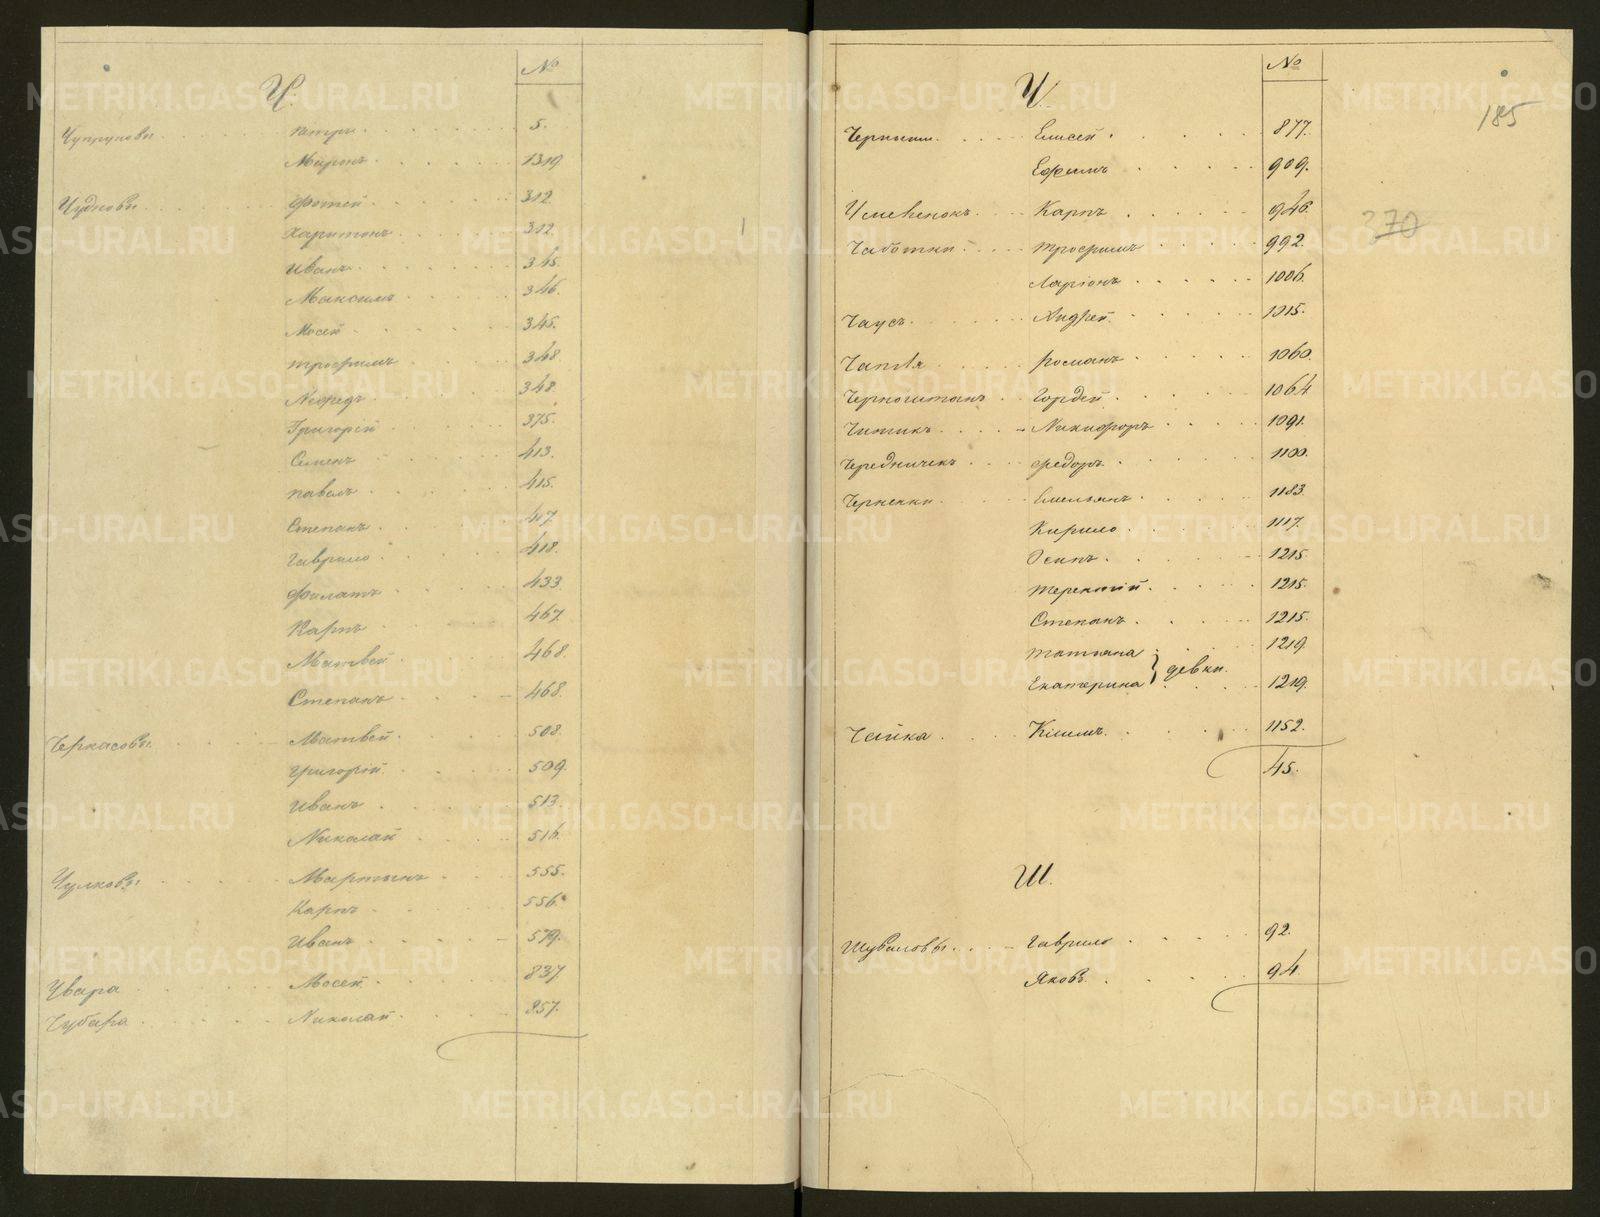 №
Ч.
Чупруновы Петръ 5.
Маркъ 1319
Чудновы Фотей 312
Харитонъ 312.
Иванъ 345.
Максимъ 346.
Мосей 345.
Трофимъ 348
Нефедъ 348.
Григорій 375.
Семенъ 413.
Павелъ 415.
Степанъ 417.
Гаврило 418.
Филатъ 433.
Карпъ 467.
Матвей 468.
Степанъ 468.
Черкасовы Матвей 508.
Григорій 509.
Иванъ 513.
Николай 516.
Чулковы Мартынъ 555.
Карпъ 556.
Иванъ 579.
Чвара Мосей 837.
Чубара Николай 857.
№
Ч.
185
Черныш Елисей 877.
Ефимъ 909.
Карпъ 946.
370
Чаботки Трофимъ 992.
Ларіонъ 1006.
Чаусъ Андрей 1015.
Чапля Романъ 1060.
Черноштанъ Гордей 1064
Чижикъ Никифоръ 1091.
Чередничекъ Федоръ 1100.
Черненки Емельянъ 1183.
Кирило 1117.
Осипъ 1215.
Терентій 1215.
Степанъ 1215.
Татьяна 1219.
Екатерина } девки. 1219.
Чайка Климъ 1152.
45.
Ш.
Шуваловы Гаврило 92.
Яковъ 94.
METRIKI.GASO-URAL.RU